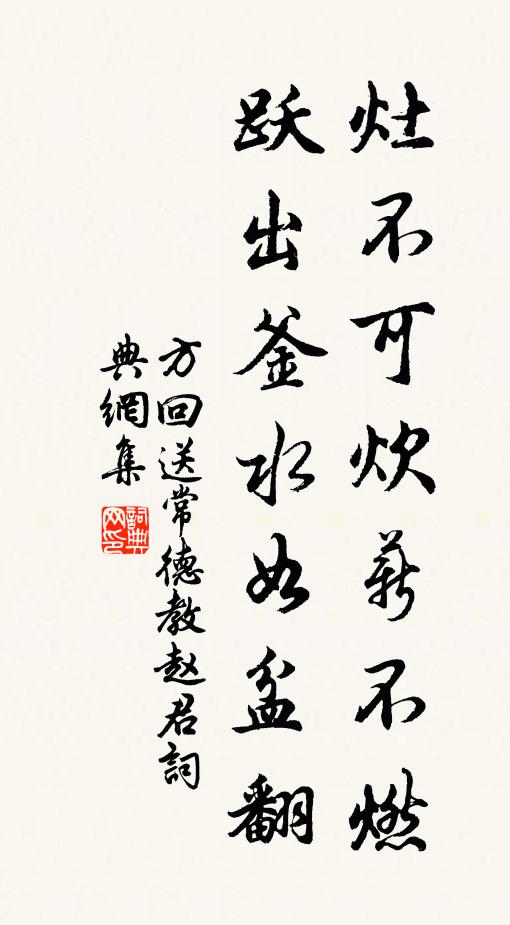 灶不可炊薪不燃
跃出釜水如盆翻
方回送常德教赵君詞
典網集
詞典网印